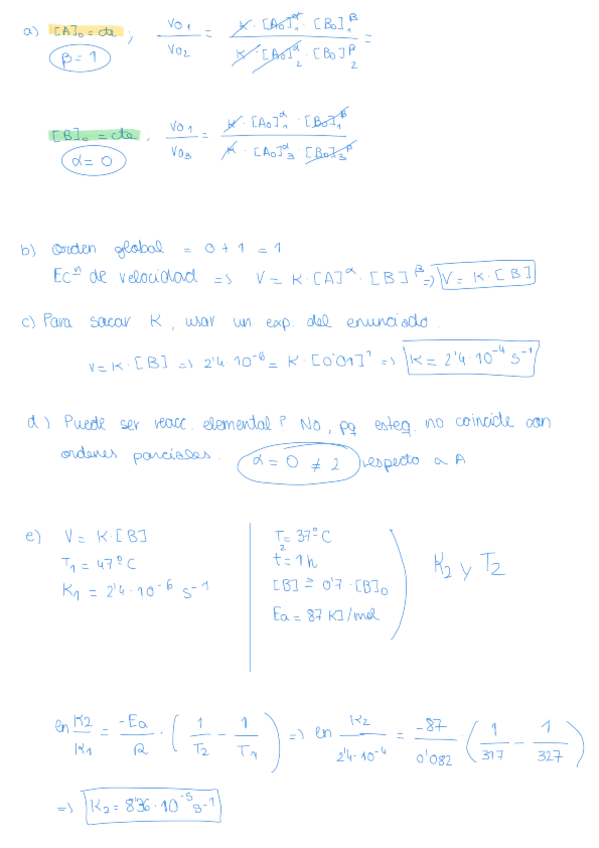 a) [A]₀ = cte ; V01/V02 = K · [A₀]₁^α · [B₀]₁^β / K · [A₀]₂^α · [B₀]₂^β =
β = 1
[B]₀ = cte , V01/V03 = K · [A₀]₁^α · [B₀]₁^β / K · [A₀]₃^α · [B₀]₃^β
α = 0
b) Orden global = 0 + 1 = 1
Ecⁿ de velocidad => V = K · [A]^α · [B]^β => V = K · [B]
c) Para sacar K, usar un exp. del enunciado.
V = K · [B] => 2'4 · 10⁻⁶ = K · [0'01]¹ => K = 2'4 · 10⁻⁴ s⁻¹
d) Puede ser reacc. elemental? No, pq esteq. no coincide con
ordenes parciales. α = 0 ≠ 2 respecto a A
e) V = K · [B]
T₁ = 47°C
K₁ = 2'4 · 10⁻⁶ s⁻¹
T₂ = 37°C
t = 1h
[B] = 0'7 · [B]₀
Ea = 87 KJ/mol
K₂ y T₂
ln K₂/K₁ = -Ea/R · (1/T₂ - 1/T₁) => ln K₂/2'4 · 10⁻⁴ = -87/0'082 · (1/317 - 1/327)
=> K₂ = 8'36 · 10⁻⁵ s⁻¹